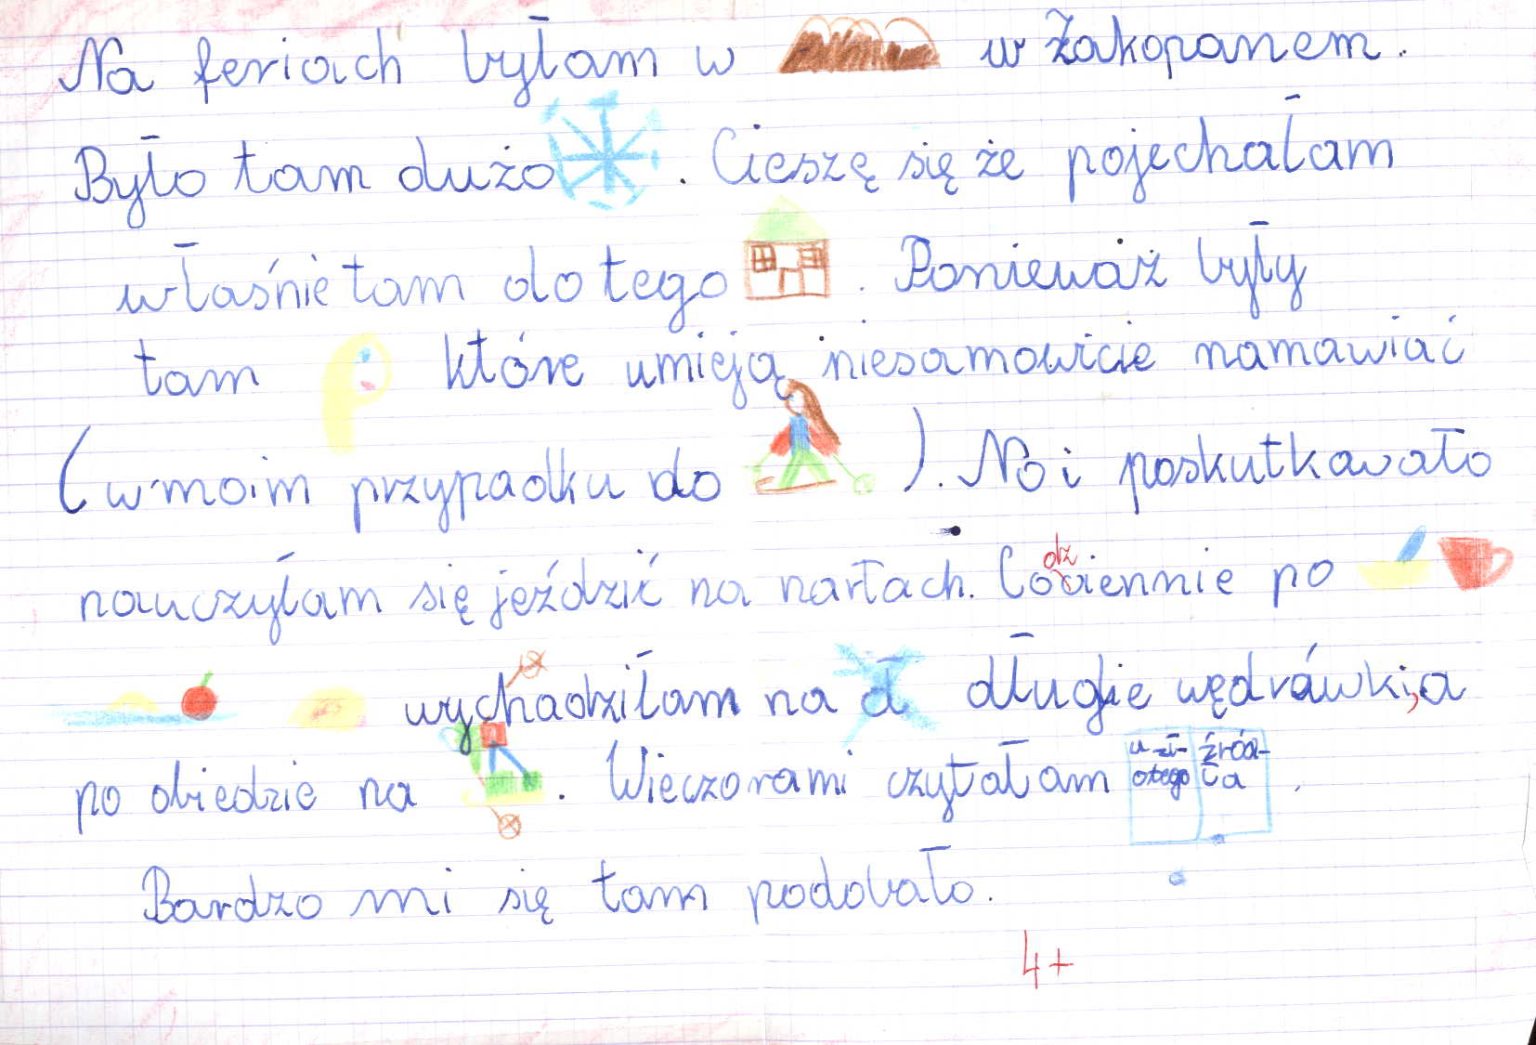 Na feriach byłam w w Zakopanem.
Było tam dużo . Cieszę się że pojechałam
właśnie tam do tego . Ponieważ były
tam które umieją niesamowicie namawiać
(w moim przypadku do ). No i poskutkowało
nauczyłam się jeździć na nartach. Codziennie po
wychodziłam na długie wędrówki, a
po obiedzie na . Wieczorami czytałam
u zł- źród-
otego ła
Bardzo mi się tam podobało.
4+